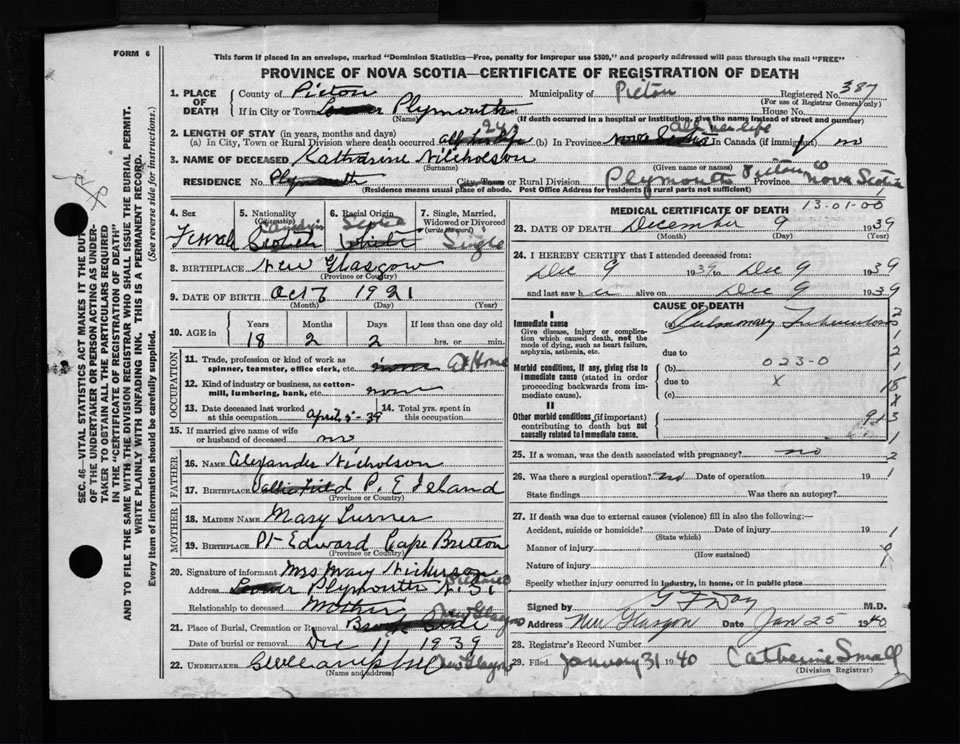 FORM 6
This form if placed in an envelope, marked "Dominion Statistics—Free, penalty for improper use $300," and properly addressed will pass through the mail "FREE"
PROVINCE OF NOVA SCOTIA—CERTIFICATE OF REGISTRATION OF DEATH
SEC. 46—VITAL STATISTICS ACT MAKES IT THE DUTY
OF THE UNDERTAKER OR PERSON ACTING AS UNDER-
TAKER TO OBTAIN ALL THE PARTICULARS REQUIRED
IN THE "CERTIFICATE OF REGISTRATION OF DEATH"
AND TO FILE THE SAME WITH THE DIVISION REGISTRAR WHO SHALL ISSUE THE BURIAL PERMIT.
WRITE PLAINLY WITH UNFADING INK. THIS IS A PERMANENT RECORD.
Every item of information should be carefully supplied. (See reverse side for instructions.)
1. PLACE OF DEATH
County of Pictou Municipality of Pictou Registered No. 387
(For use of Registrar General only)
If in City or Town Lower Plymouth House No.
(Name) (If death occurred in a hospital or institution, give the name instead of street and number)
2. LENGTH OF STAY (in years, months and days)
(a) In City, Town or Rural Division where death occurred (b) In Province Nova Scotia all her life In Canada (if immigrant) no
3. NAME OF DECEASED Katharine Nicholson
(Surname) (Given name or names)
RESIDENCE No. Plymouth City, Town or Rural Division Plymouth Pictou Co Province Nova Scotia
(Residence means usual place of abode. Post Office Address for residents in rural parts not sufficient)
4. Sex
Female
5. Nationality (Citizenship)
Scotch
6. Racial Origin
White
7. Single, Married, Widowed or Divorced (write the word)
Single
8. BIRTHPLACE New Glasgow
(Province or Country)
9. DATE OF BIRTH Oct 7 1921
(Month) (Day) (Year)
10. AGE in Years Months Days If less than one day old
18 2 2 hrs. or min.
OCCUPATION
11. Trade, profession or kind of work as spinner, teamster, office clerk, etc. none At Home
12. Kind of industry or business, as cotton-mill, lumbering, bank, etc. none
13. Date deceased last worked at this occupation April 5-39 14. Total yrs. spent in this occupation
15. If married give name of wife or husband of deceased no
FATHER
16. NAME Alexander Nicholson
17. BIRTHPLACE P. E Island
(Province or Country)
MOTHER
18. MAIDEN NAME Mary Turner
19. BIRTHPLACE Pt Edward Cape Britton
(Province or Country)
20. Signature of informant Mrs Mary Nickerson
Address Lower Plymouth N. S.
Relationship to deceased Mother
21. Place of Burial, Cremation or Removal New Glasgow
Date of burial or removal Dec 11 1939
22. UNDERTAKER New Glasgow
(Name and address)
MEDICAL CERTIFICATE OF DEATH
13-01-00
23. DATE OF DEATH December 9 1939
(Month) (Day) (Year)
24. I HEREBY CERTIFY that I attended deceased from:
Dec 9 1939 to Dec 9 1939
and last saw h alive on Dec 9 1939
CAUSE OF DEATH
I
Immediate cause
Give disease, injury or complication which caused death, not the mode of dying, such as heart failure, asphyxia, asthenia, etc.
(a) Pulmonary Tuberculosis
due to
Morbid conditions, if any, giving rise to immediate cause (stated in order proceeding backwards from immediate cause).
(b) 023-0
due to X
(c)
II
Other morbid conditions (if important) contributing to death but not causally related to immediate cause.
25. If a woman, was the death associated with pregnancy? no
26. Was there a surgical operation? no Date of operation 19
State findings Was there an autopsy?
27. If death was due to external causes (violence) fill in also the following:—
Accident, suicide or homicide? Date of injury 19
(State which)
Manner of injury
(How sustained)
Nature of injury
Specify whether injury occurred in industry, in home, or in public place
Signed by G F Day M.D.
Address New Glasgow Date Jan 25 1940
28. Registrar's Record Number
29. Filed January 31 1940 Catherine Small
(Division Registrar)